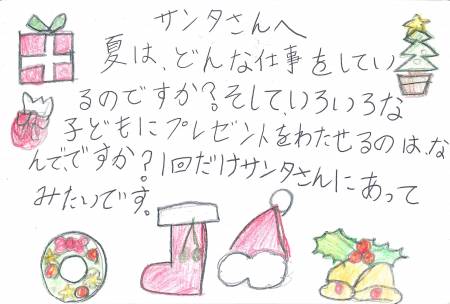 サンタさんへ
夏は、どんな仕事をしてい
るのですか?そして、いろいろな
子どもにプレゼントをわたせるのは、な
んで、ですか?1回だけサンタさんにあって
みたいです。